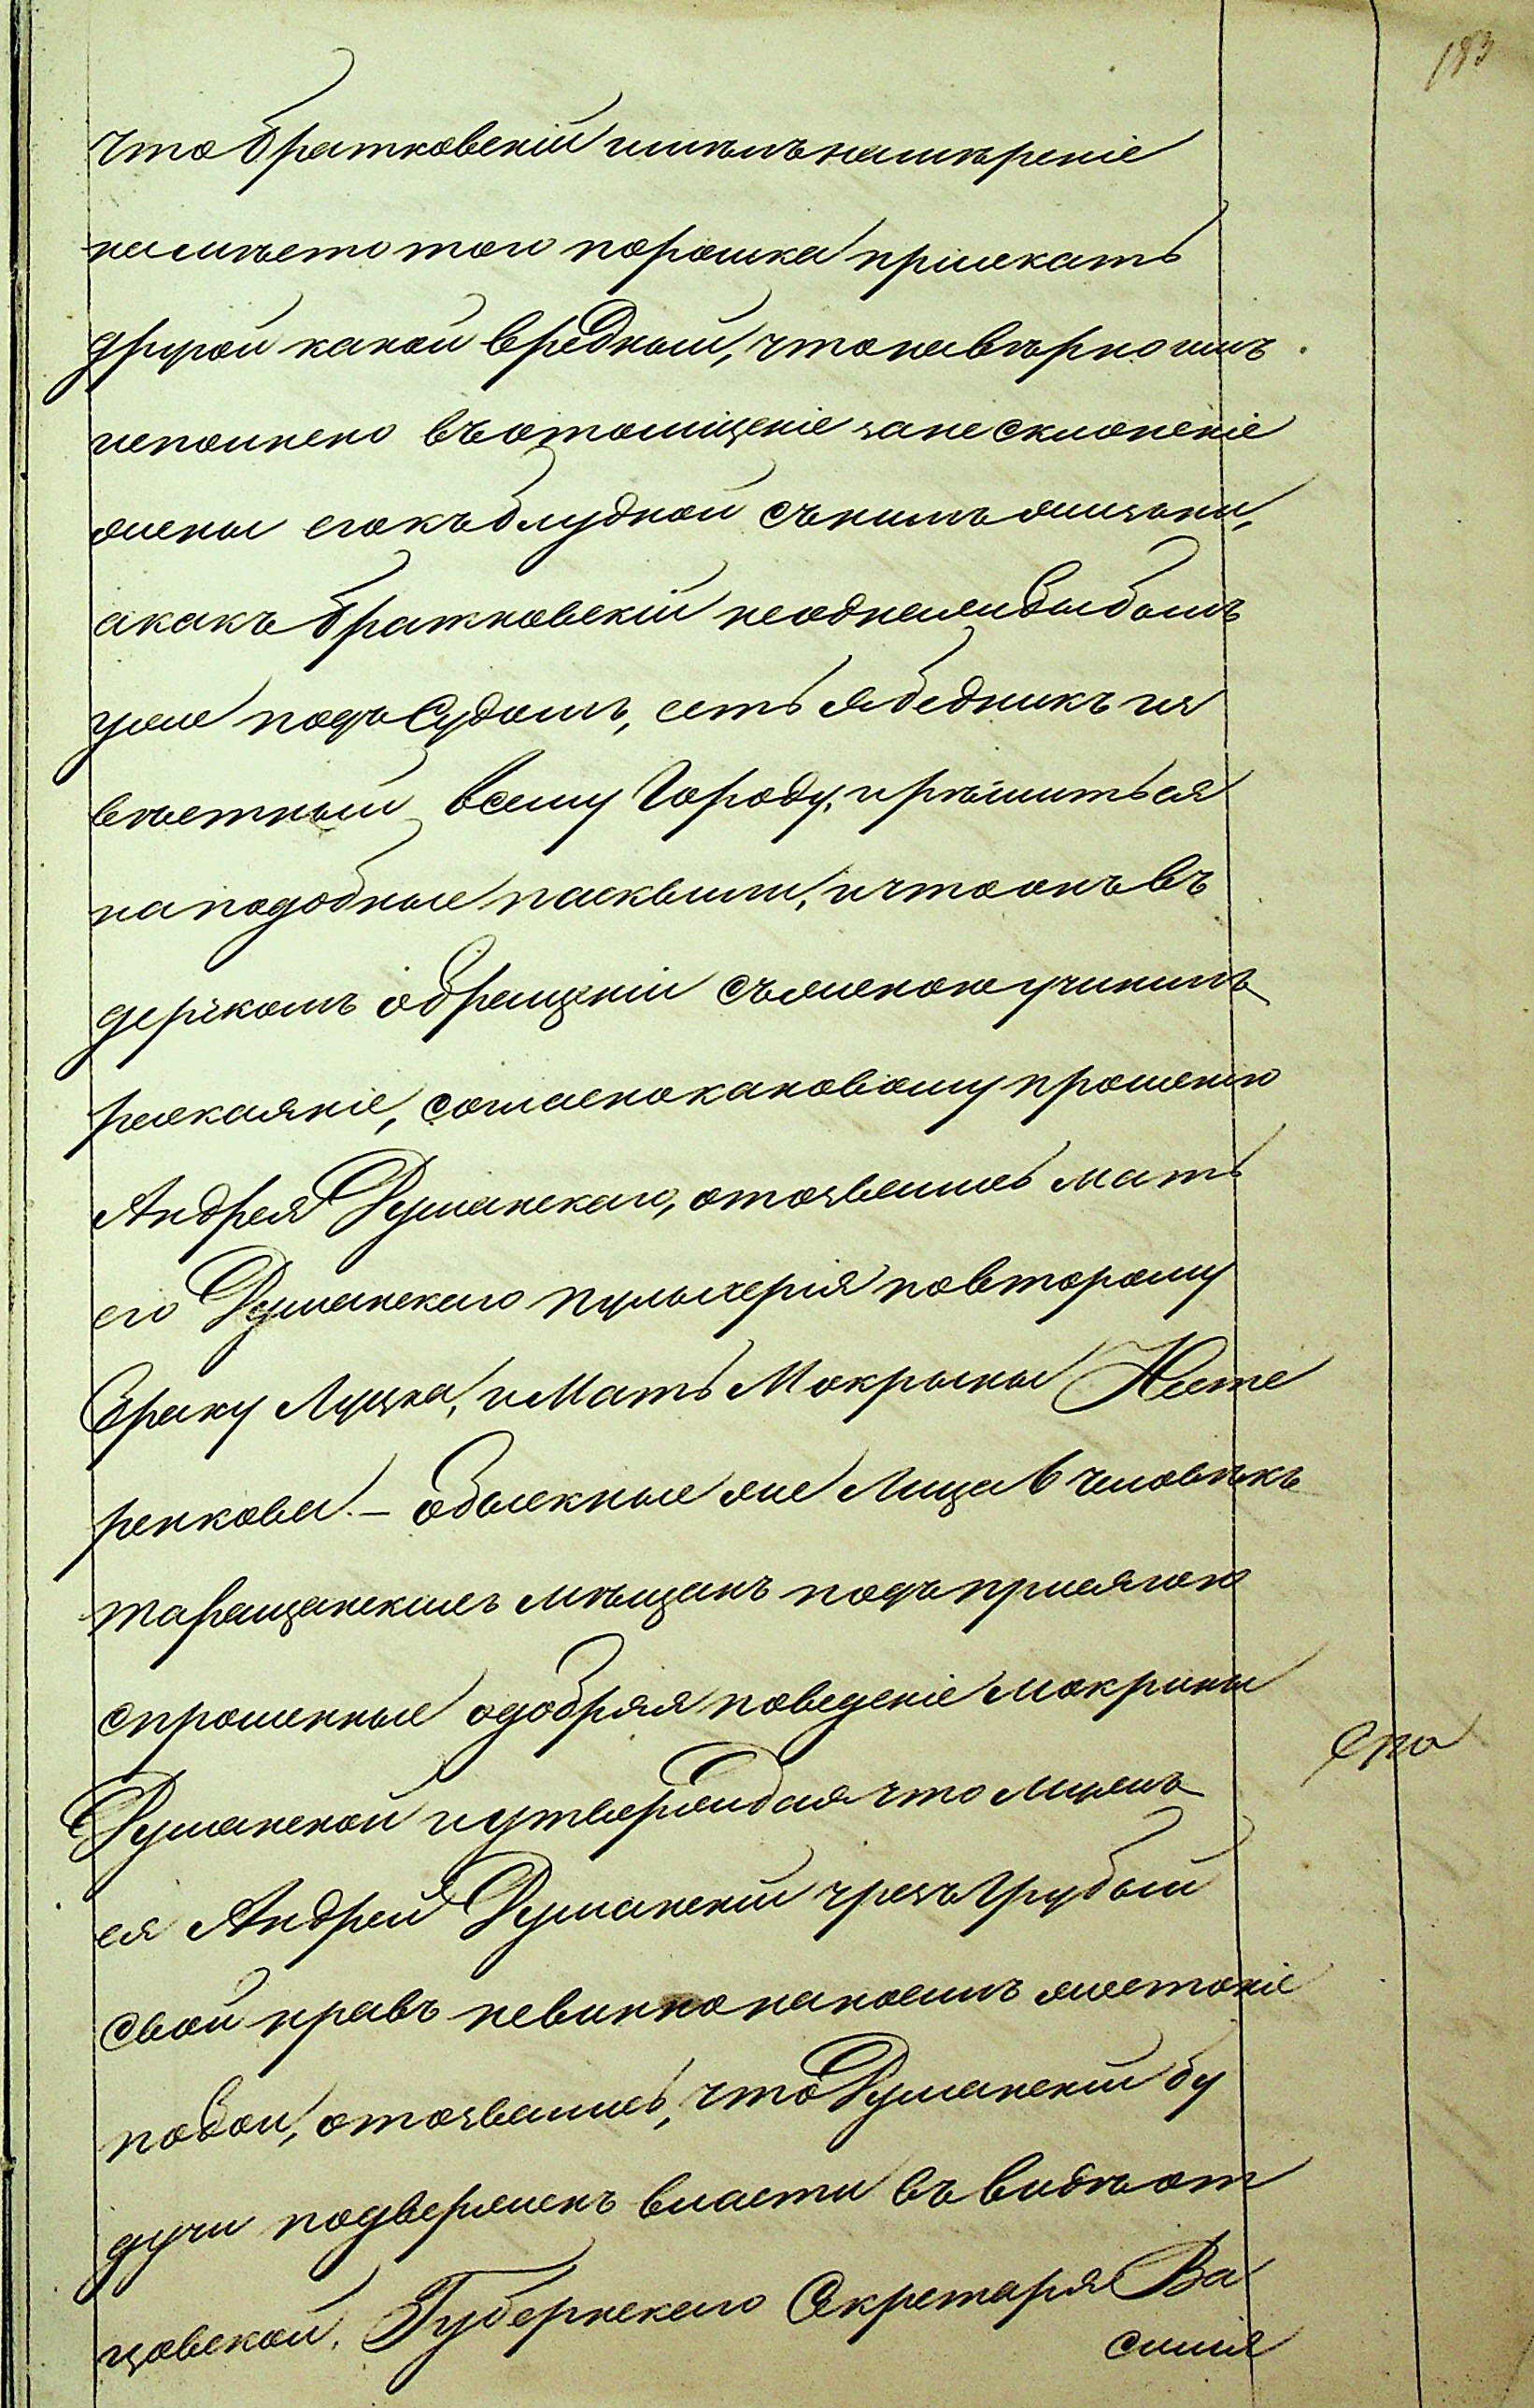 183
что Братковскій имѣлъ намѣреніе
намѣсто того порошка пріискать
другой какой вредный, что навѣрно имъ
исполнено въ отомщеніе за не склоненіе
жены его къ блудной съ нимъ жизни,
а какъ Братковскій неоднажды былъ
уже подъ Судомъ, есть ябедникъ из
вѣстный всему Городу, и рѣшиться
на подобные пасквили, и что онъ въ
дерзкомъ обращеніи съ женою учинилъ
раскаяніе, согласно каковому прошенію
Андрея Думанскаго, отозвались мать
его Думанскаго Пульхерія по второму
браку Луцка, и Мать Мокрыны Несте
ренкова. – Обыскные же Лица 6 человѣкъ
таращанскихъ мѣщанъ подъ присягою
спрошенные одобряя поведеніе Мокрины
Думанской и утверждая что мужъ
ея Андрей Думанскій чрезъ грубый
свой нравъ невинно наносилъ жестокіе
побои, отозвались, что Думанскій бу
дучи подверженъ власти въ видѣ от
цовской, Губернскаго Секретаря Ва
силія